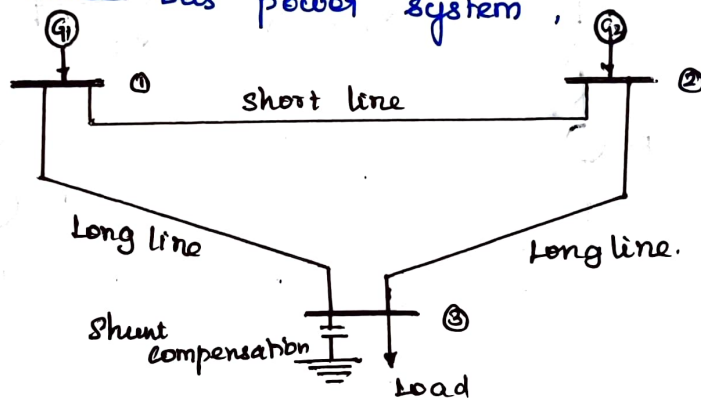 bus power system,
G1
G2
①
②
Short line
Long line
Long line.
③
Shunt
compensation
Load